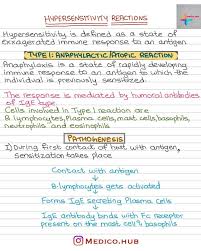 HYPERSENSITIVITY REACTIONS
Hypersensitivity is defined as a state of
exxagerated immune response to an antigen
TYPE 1: ANAPHYLACTIC/ATOPIC REACTION
Anaphylaxis is a state of rapidly developing
immune response to an antigen to which the
individual is previously sensitized.
The response is mediated by humoral antibodies
of IgE type
Cells involved in Type I reaction are
B.lymphocytes, Plasma cells, mast cells, basophils,
neutrophils and eosinophils
PATHOGENESIS
1) During first contact of host with antigen,
sensitization take place
Contact with antigen
B-lymphocytes gets activated
Forms IgE secreting Plasma cells
IgE antibody binds with Fc receptor
present on the mast cells & basophils
MEDICO.HUB